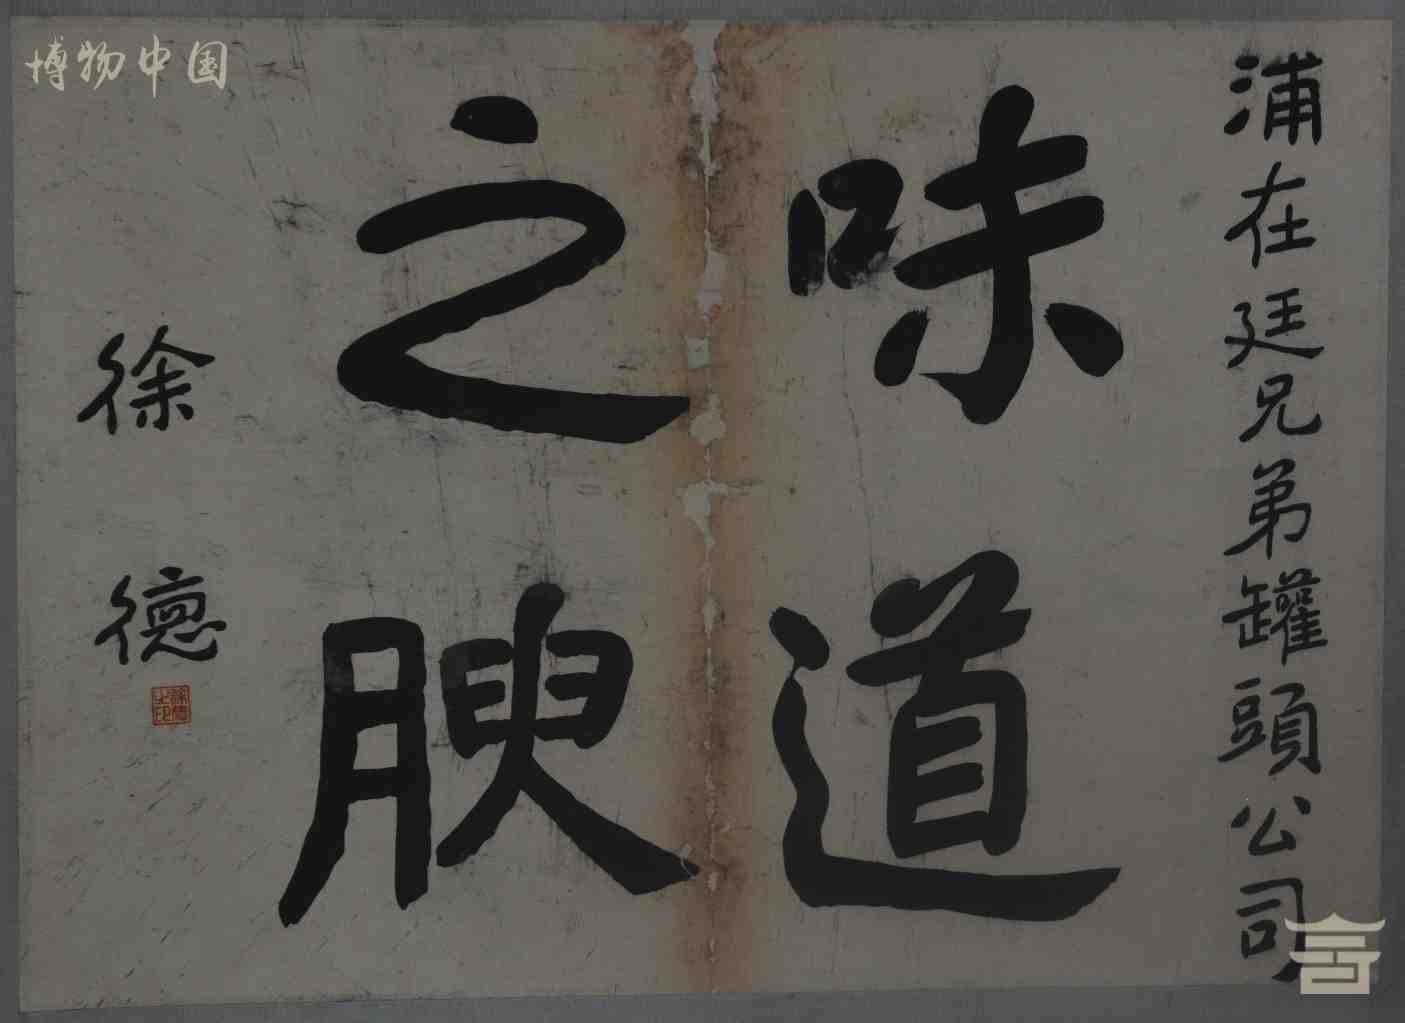 浦在廷兄弟罐頭公司
味道
之腴
徐德
徐德之印
博物中国